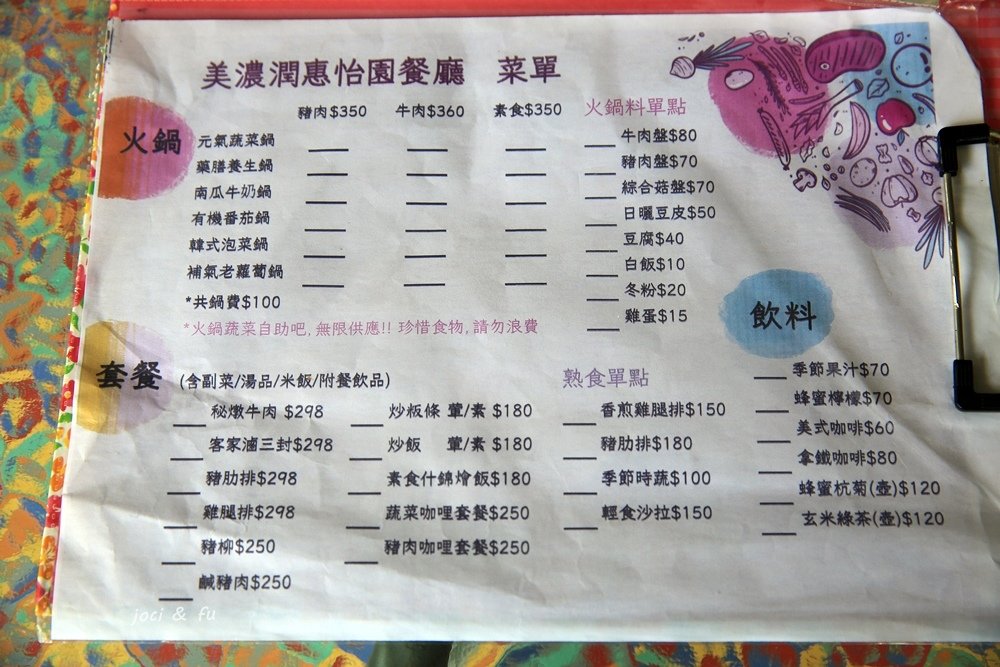 美濃潤惠怡園餐廳 菜單
火鍋
豬肉$350 牛肉$360 素食$350
元氣蔬菜鍋
藥膳養生鍋
南瓜牛奶鍋
有機番茄鍋
韓式泡菜鍋
補氣老蘿蔔鍋
*共鍋費$100
*火鍋蔬菜自助吧,無限供應!! 珍惜食物,請勿浪費
火鍋料單點
牛肉盤$80
豬肉盤$70
綜合菇盤$70
日曬豆皮$50
豆腐$40
白飯$10
冬粉$20
雞蛋$15
套餐 (含副菜/湯品/米飯/附餐飲品)
秘燉牛肉 $298
客家滷三封$298
豬肋排$298
雞腿排$298
豬柳$250
鹹豬肉$250
炒粄條 葷/素 $180
炒飯 葷/素 $180
素食什錦燴飯$180
蔬菜咖哩套餐$250
豬肉咖哩套餐$250
熟食單點
香煎雞腿排$150
豬肋排$180
季節時蔬$100
輕食沙拉$150
飲料
季節果汁$70
蜂蜜檸檬$70
美式咖啡$60
拿鐵咖啡$80
蜂蜜杭菊(壺)$120
玄米綠茶(壺)$120
joci & fu